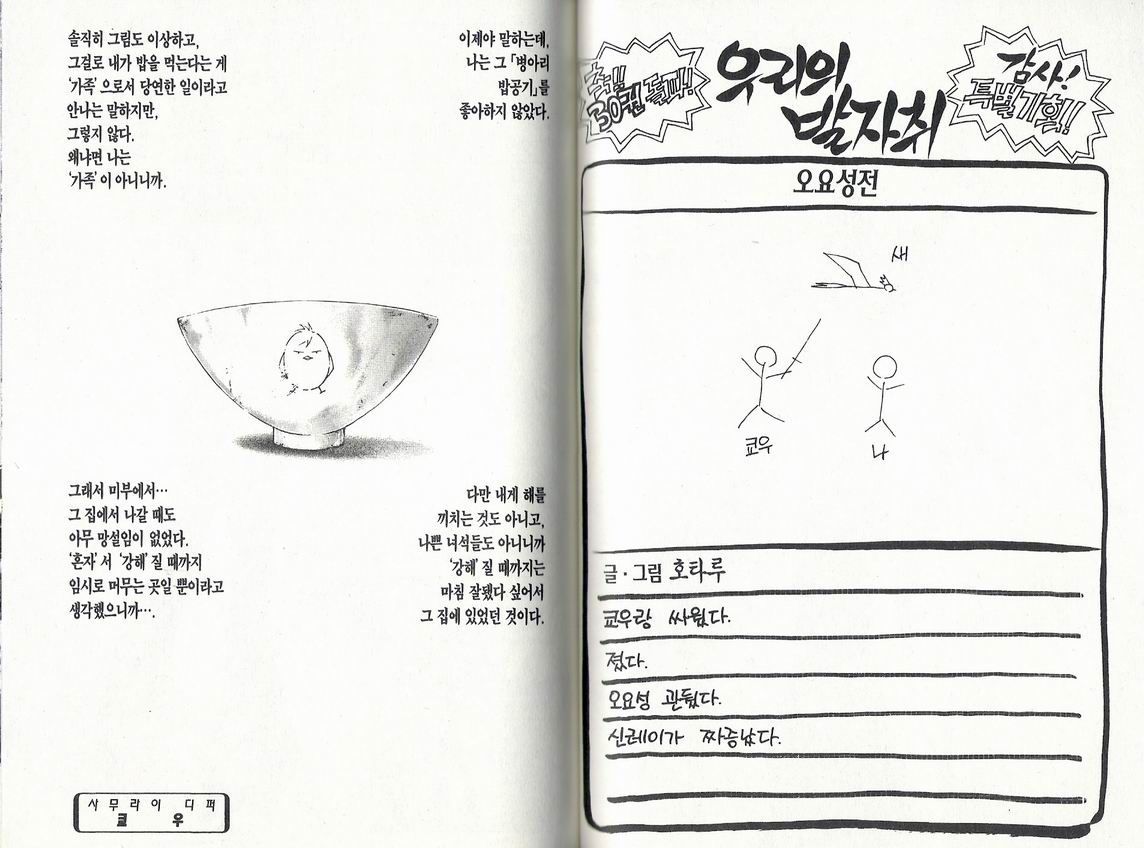 축!!
30권 돌파!
우리의
발자취
감사!
특별기획!!
오요성전
새
쿄우
나
글·그림 호타루
쿄우랑 싸웠다.
졌다.
오요성 관뒀다.
신레이가 짜증냈다.
이제야 말하는데,
나는 그 「병아리
밥공기」를
좋아하지 않았다.
솔직히 그림도 이상하고,
그걸로 내가 밥을 먹는다는 게
‘가족’으로서 당연한 일이라고
안나는 말하지만,
그렇지 않다.
왜냐면 나는
‘가족’이 아니니까.
다만 내게 해를
끼치는 것도 아니고,
나쁜 녀석들도 아니니까
‘강해’질 때까지는
마침 잘됐다 싶어서
그 집에 있었던 것이다.
그래서 미부에서…
그 집에서 나갈 때도
아무 망설임이 없었다.
‘혼자’서 ‘강해’질 때까지
임시로 머무는 곳일 뿐이라고
생각했으니까….
사무라이 디퍼
쿄우